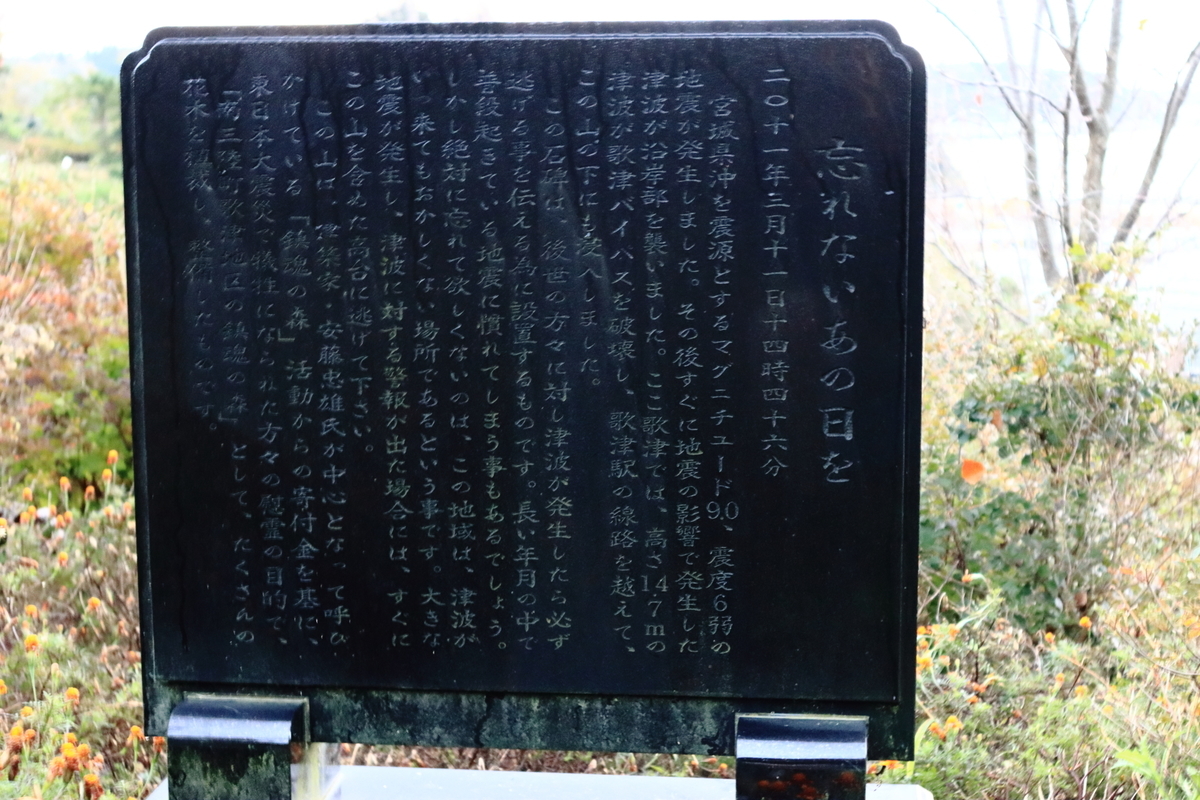 忘れないあの日を
二〇十一年三月十一日十四時四十六分
宮城県沖を震源とするマグニチュード9.0、震度6弱の
地震が発生しました。その後すぐに地震の影響で発生した
津波が沿岸部を襲いました。ここ歌津では、高さ14.7mの
津波が歌津バイパスを破壊し、歌津駅の線路を越えて、
この山の下にも突入しました。
この石碑は、後世の方々に対し津波が発生したら必ず
逃げる事を伝える為に設置するものです。長い年月の中で
普段起きている地震に慣れてしまう事もあるでしょう。
しかし絶対に忘れて欲しくないのは、この地域は、津波が
いつ来てもおかしくない場所であるという事です。大きな
地震が発生し、津波に対する警報が出た場合には、すぐに
この山を含めた高台に逃げて下さい。
この山は、建築家・安藤忠雄氏が中心となって呼び
かけている「鎮魂の森」活動からの寄付金を基に、
東日本大震災で犠牲になられた方々の慰霊の目的で、
「南三陸町歌津地区の鎮魂の森」として、たくさんの
花木を植樹し、整備したものです。